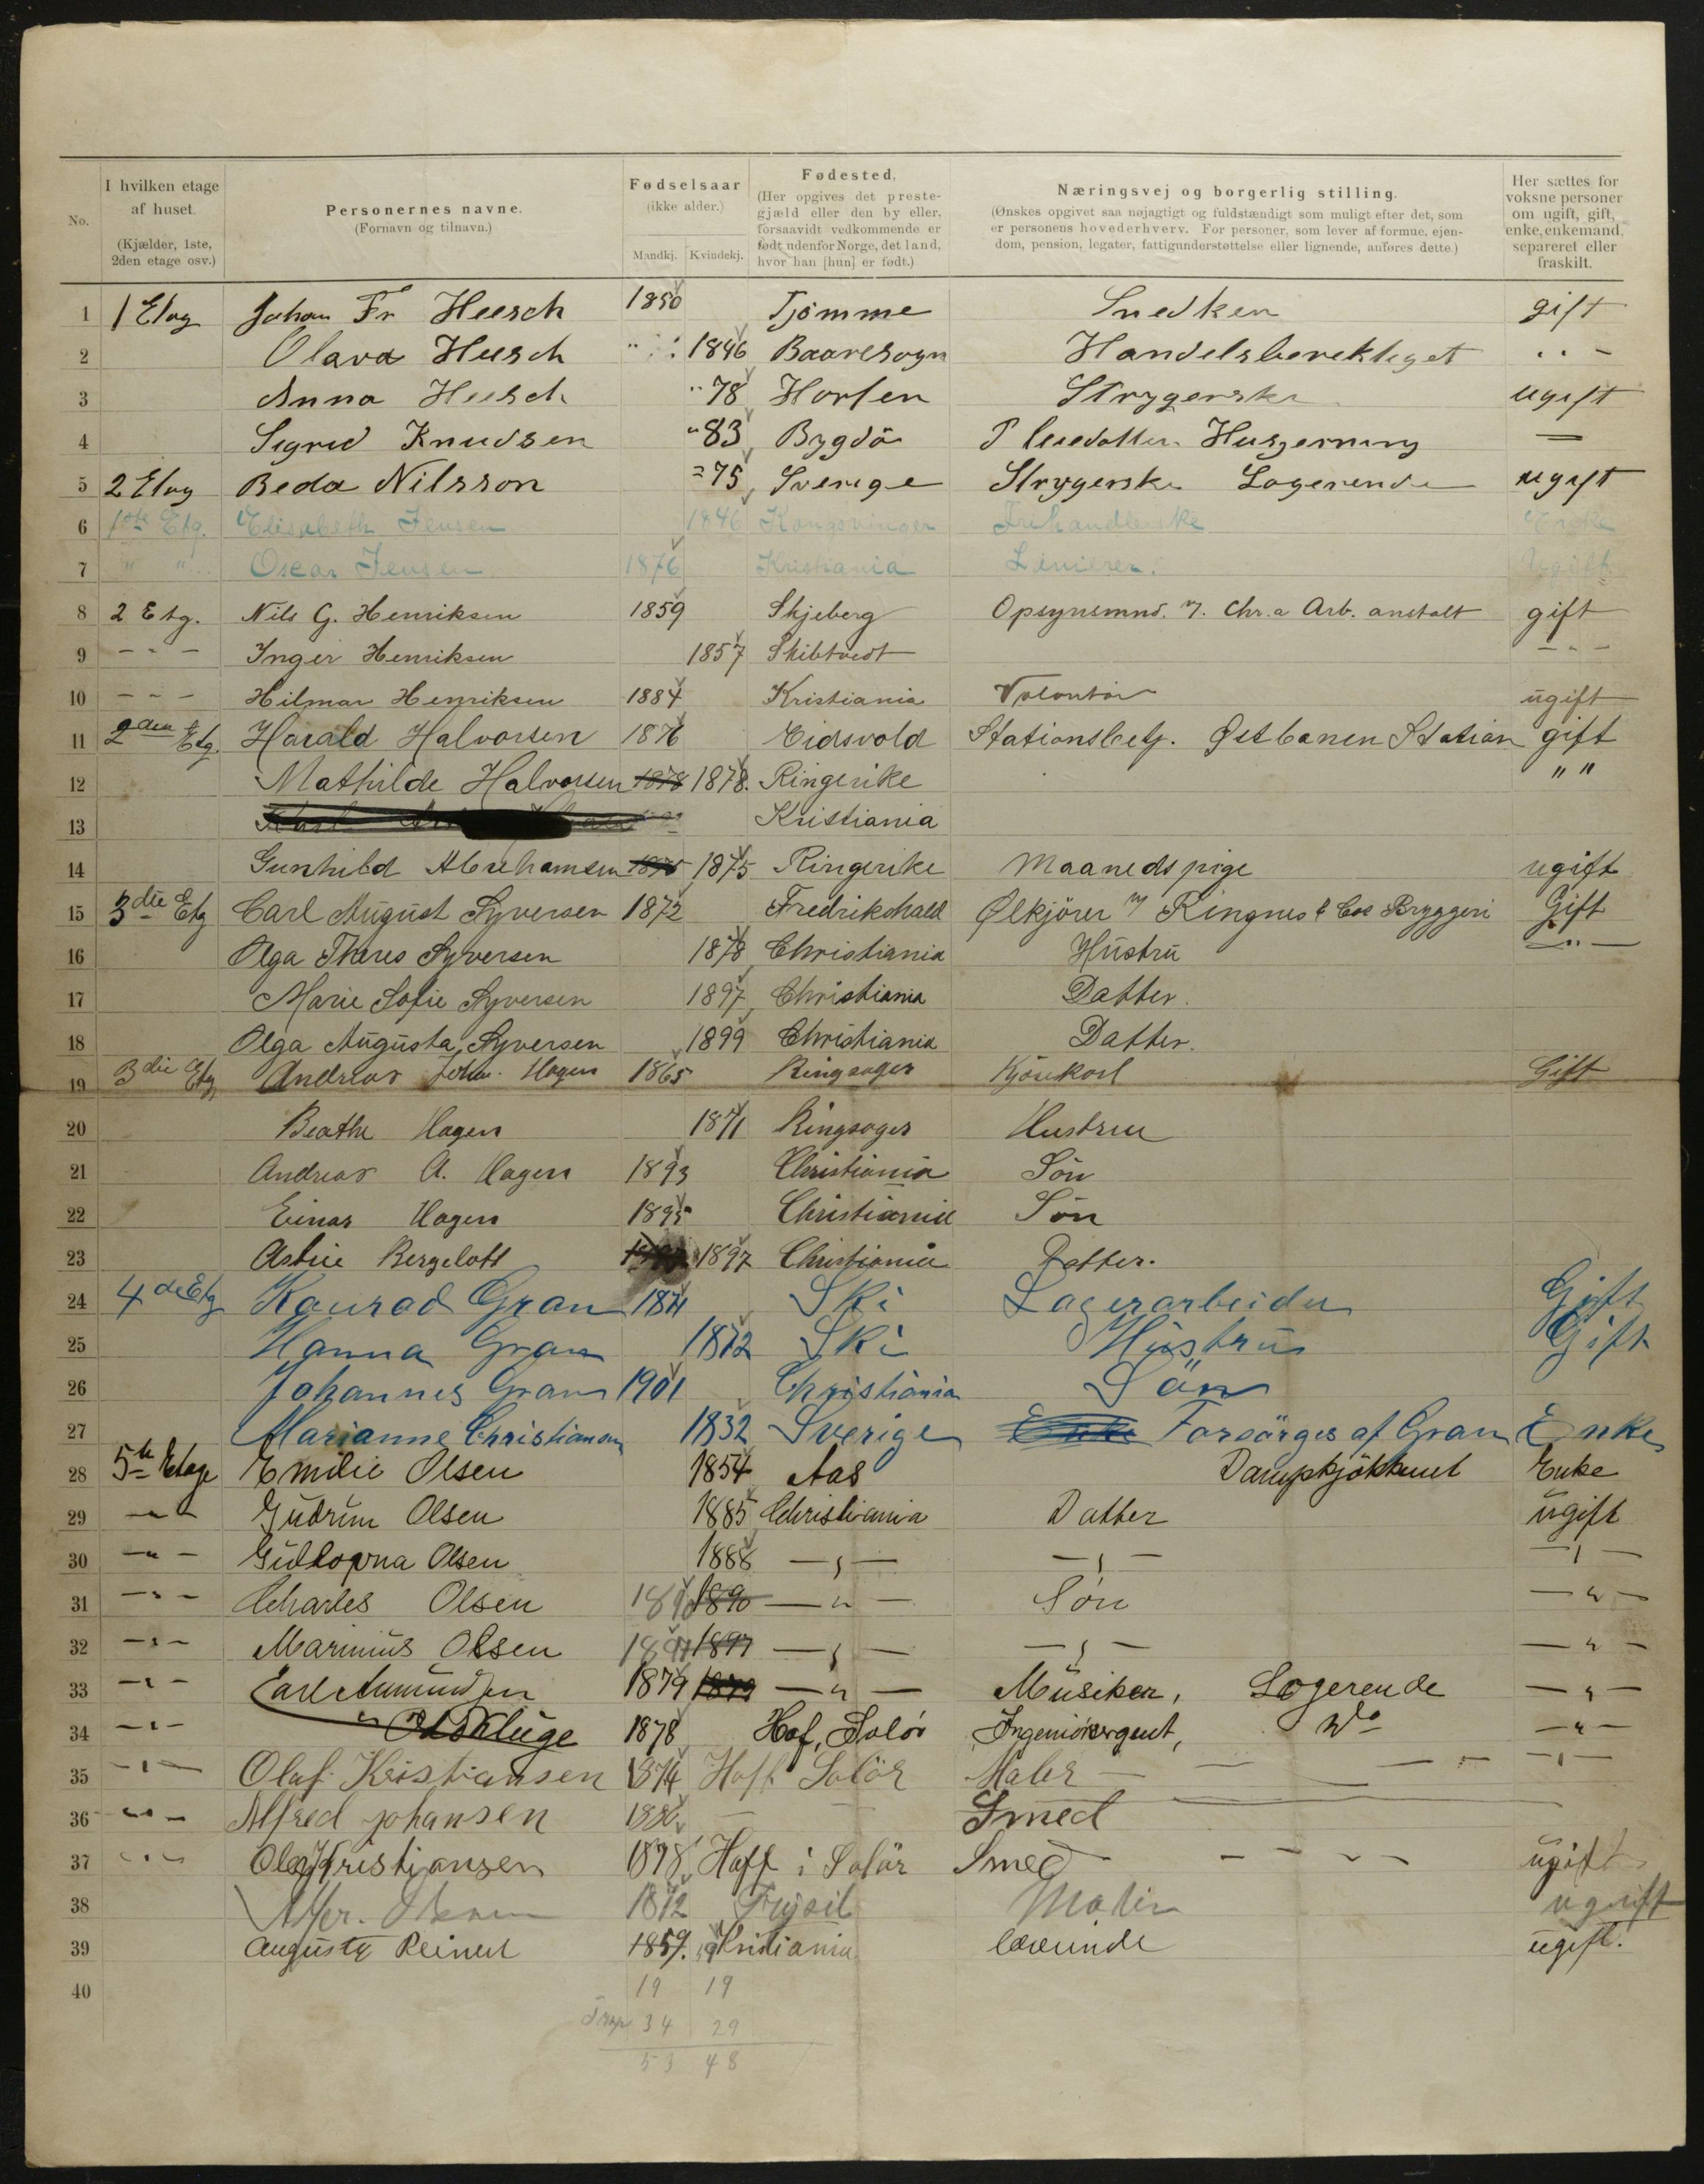 No.
I hvilken etage af huset.
(Kjælder, 1ste, 2den etage osv.)
Personernes navne.
(Fornavn og tilnavn.)
Fødselsaar
(ikke alder.)
Mandkj. Kvindekj.
Fødested.
(Her opgives det preste-
gjæld eller den by eller,
forsaavidt vedkommende er
født udenfor Norge, det land,
hvor han [hun] er født.)
Næringsvej og borgerlig stilling.
(Ønskes opgivet saa nøjagtigt og fuldstændigt som muligt efter det, som
er personens hovederhverv. For personer, som lever af formue, ejen-
dom, pension, legater, fattigunderstøttelse eller lignende, anføres dette.)
Her sættes for
voksne personer
om ugift, gift,
enke, enkemand,
separeret eller
fraskilt.
1 1 Etag Johan Fr Heesch 1850 Tjömme Snedker gift
2 Olava Heesch 1846 Handelsberektiget " -
3 Anna Heesch " 78 Horten Strygerske ugift
4 Sigrid Knudsen " 83 Bygdö Pleiedatter Husgerning —
5 2 Etag Beda Nilsson = 75 Sverige Strygerske Logerende ugift
6 1ste Etg. Elisabeth Jensen 1846 Kongsvinger Enke
7 " " Oscar Jensen 1876 Kristiania Linierer. Ugift
8 2 Etg. Nils G. Henriksen 1859 Skjeberg Opsynsmnd. v. Chr.a Arb. anstalt gift
9 - " - Inger Henriksen 1857 Skibtvedt - " -
10 - " - Hilmar Henriksen 1884 Kristiania Volontör ugift
11 2den Etg. Harald Halvorsen 1876 Eidsvold Stationsbetj. Østbanen Station gift
12 Mathilde Halvorsen 1878 1878. Ringerike " "
13 Kristiania
14 Gunhild Abrahamsen 1875 1875 Ringerike Maanedspige ugift
15 3die Etg Carl August Syversen 1872 Fredrikshald Ølkjörer v Ringnes & Coe Bryggeri Gift
16 Olga Theres Syversen 1878 Christiania Hustru - " -
17 Marie Sofie Syversen 1897 Christiania Datter.
18 Olga Augusta Syversen 1899 Christiania Datter.
19 3die Etg Andreas Joh. Hagen 1865 Ringsager Kjörekarl Gift
20 Beathe Hagen 1871 Ringsager Hustru
21 Andreas A. Hagen 1893 Christiania Sön
22 Einar Hagen 1895 Christiania Sön
23 Bergelott 1897 Christiania Datter.
24 4de Etg Konrad Gran 1871 Ski Lagerarbeider Gift
25 Hanna Gran 1872 Ski Hustru Gift
26 Johannes Gran 1901 Christiania Sön
27 Marianne Christiansen 1832 Sverige Enke Forsörges af Gran Enke
28 5te Etage Emilie Olsen 1854 Aas Dampkjökkenet Enke
29 - " - Gudrun Olsen 1885 Christiania Datter ugift
30 - " - Olsen 1888 - " - - " - - " -
31 - " - Charles Olsen 1890 1890 - " - Sön - " -
32 - " - Marinius Olsen 1897 1897 - " - - " - - " -
33 - " - Carl Amundsen 1879 1879 - " - Musiker, Logerende - " -
34 - " - 1878 Hof, Solör Ingeniöragent, Do - " -
35 - " - Olaf Kristiansen 1874 Hoff Solör Maler - " -
36 - " - Alfred Johansen 188 — — Smed
37 - " - Kristiansen 1878 Hoff i Solör Smed - - - - ugift
38 1872 Trysil Maler ugift
39 Augusta Reinert 1859. Kristiania lærerinde ugift.
40 19 19
34 29
53 48